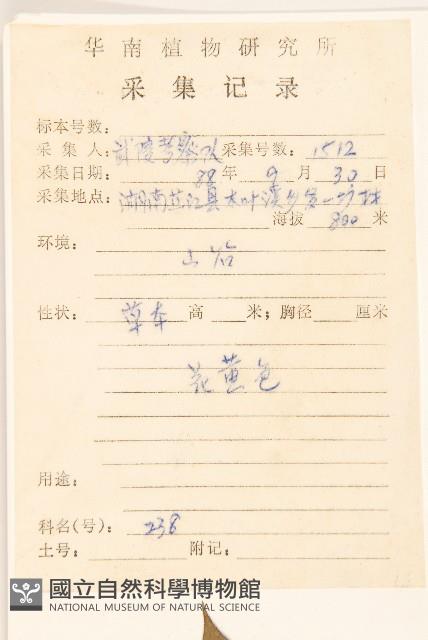 华南植物研究所
采集记录
标本号数：
采集人：武陵考察队 采集号数：1512
采集日期：88年9月30日
采集地点：湖南芷江县木叶溪乡
海拔 800 米
环境：
山谷
性状：草本 高 米；胸径 厘米
花黄色
用途：
科名(号)：238
土号： 附记：
國立自然科學博物館
NATIONAL MUSEUM OF NATURAL SCIENCE